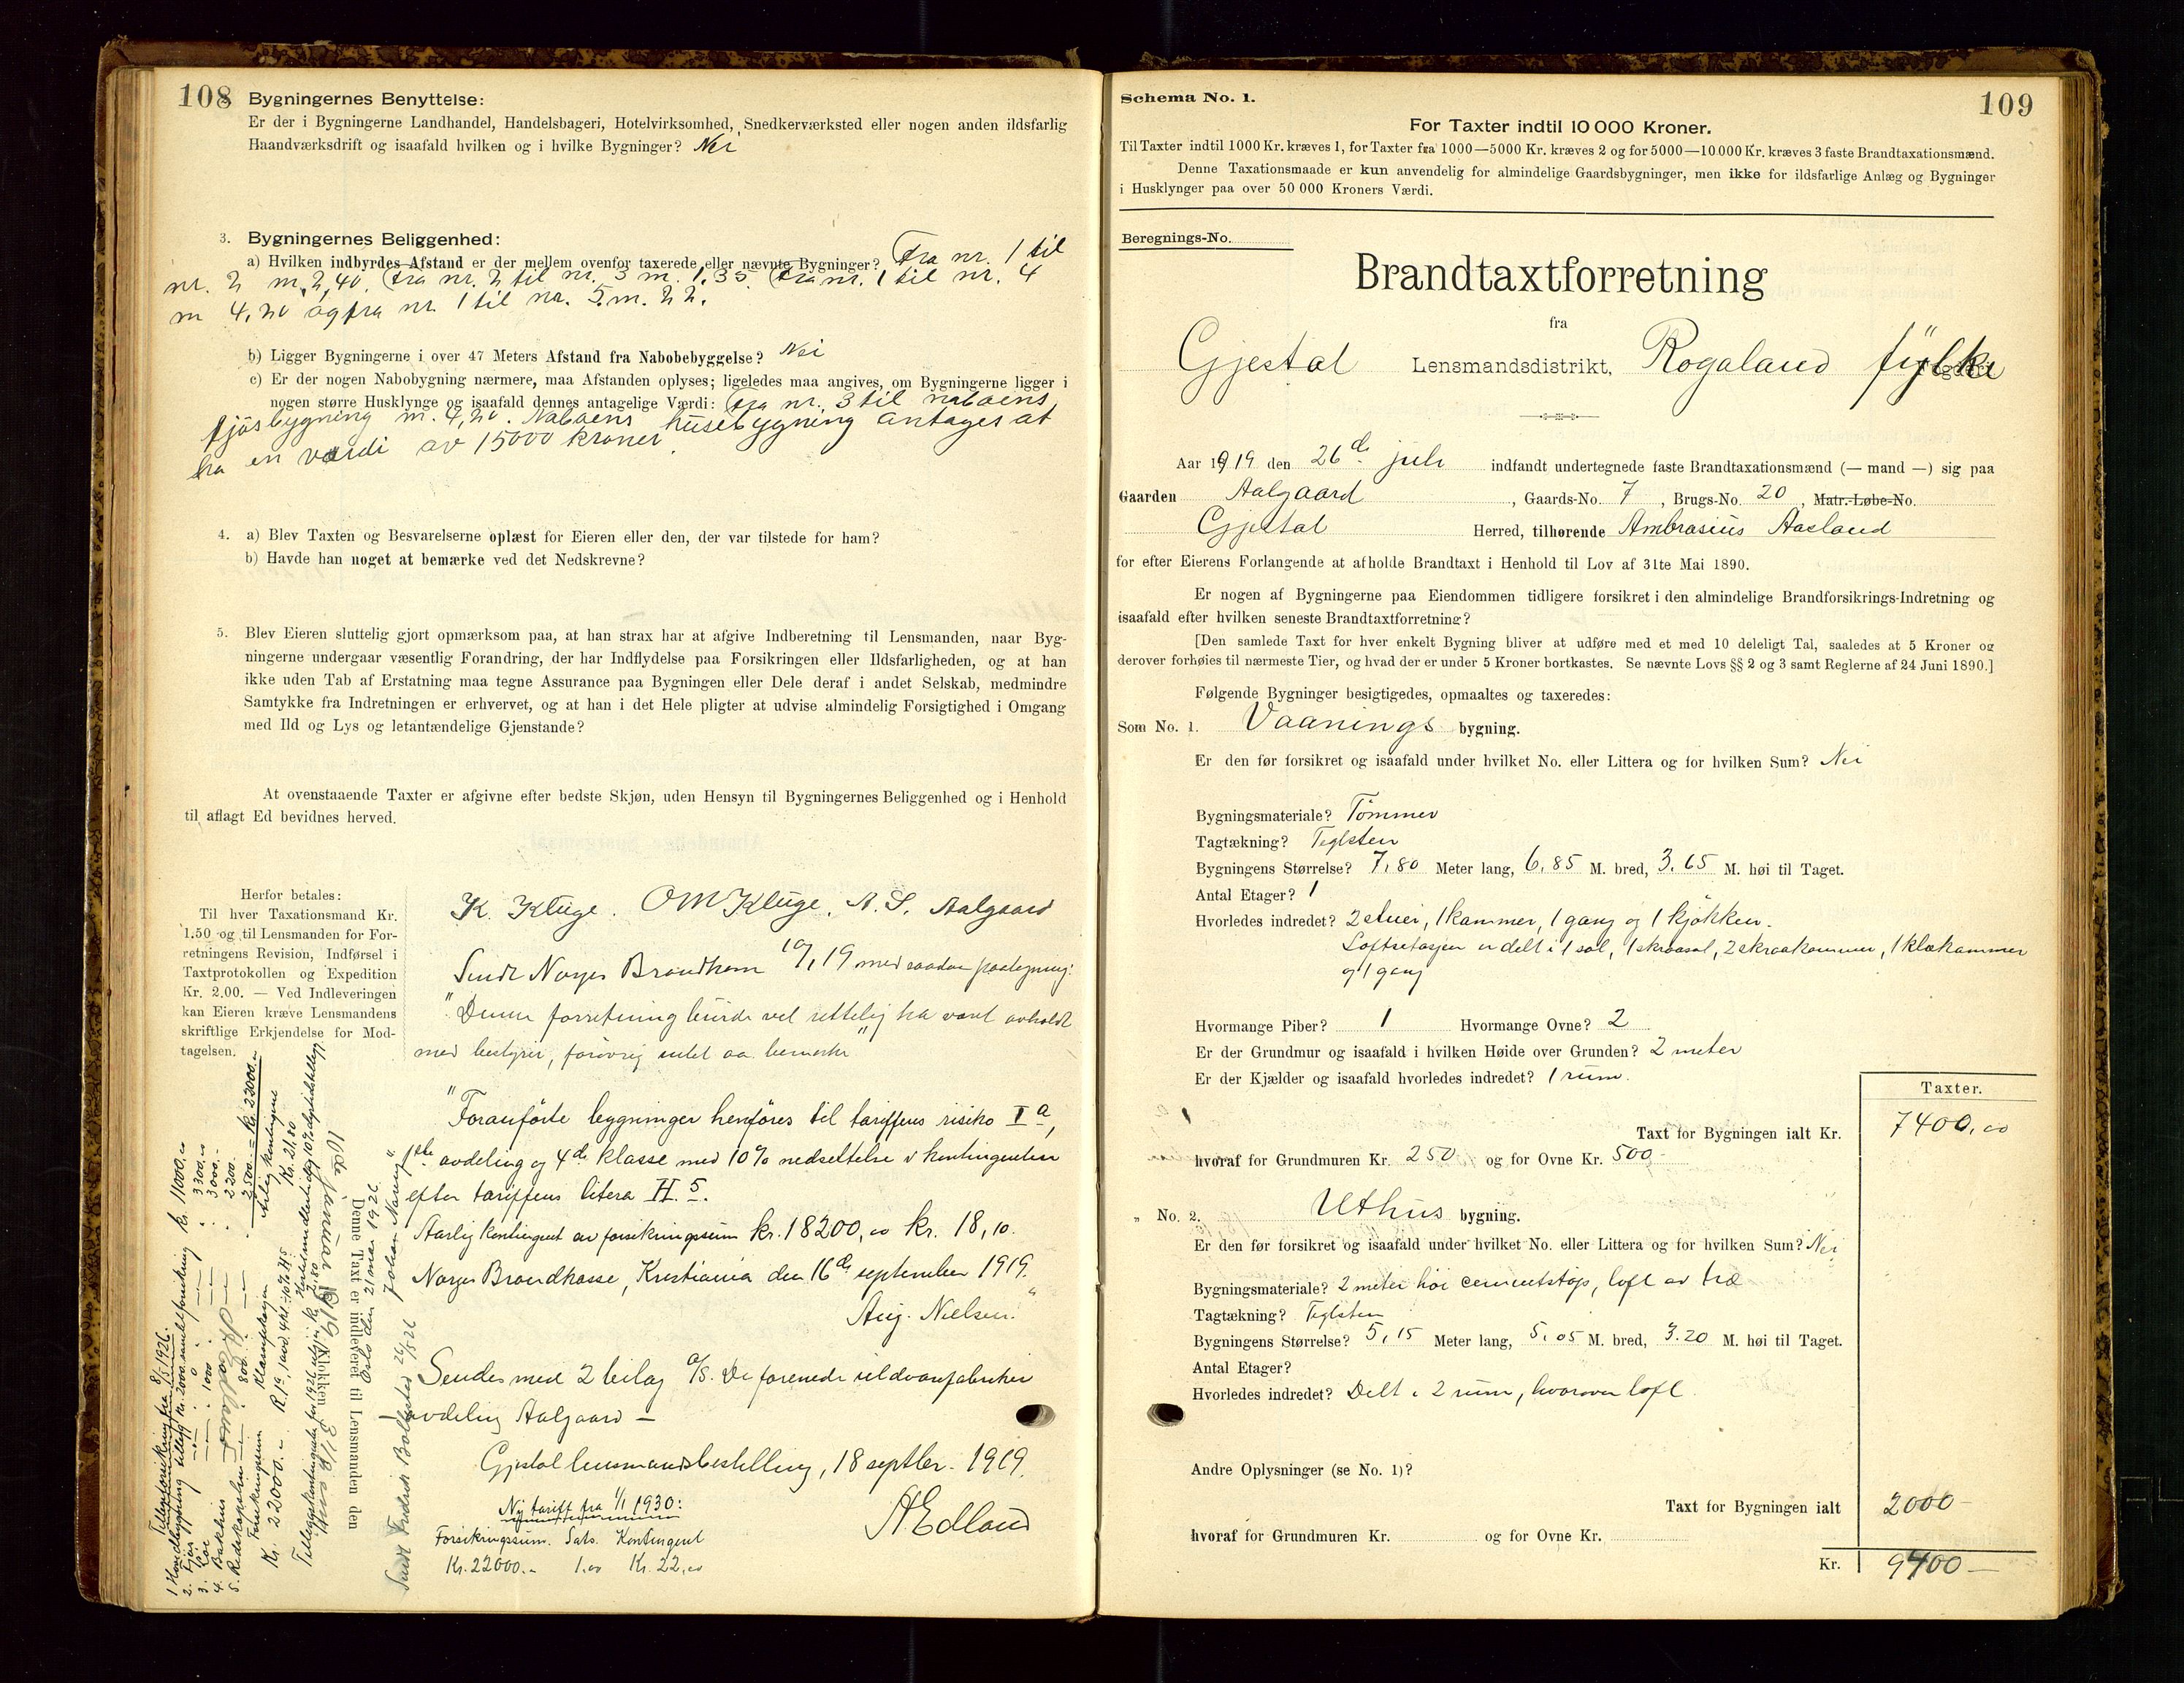 108
Bygningernes Benyttelse:
Er der i Bygningerne Landhandel, Handelsbageri, Hotelvirksomhed, Snedkerværksted eller nogen anden ildsfarlig
Haandværksdrift og isaafald hvilken og i hvilke Bygninger? Nei
3. Bygningernes Beliggenhed:
a) Hvilken indbyrdes Afstand er der mellem ovenfor taxerede eller nævnte Bygninger? Fra nr. 1 til
nr. 2 m. 2,40. Fra nr. 2 til nr. 3 m. 1,35. Fra nr. 1 til nr. 4
m 4,20 og fra nr. 1 til nr. 5 m. 22.
b) Ligger Bygningerne i over 47 Meters Afstand fra Nabobebyggelse? Nei
c) Er der nogen Nabobygning nærmere, maa Afstanden oplyses; ligeledes maa angives, om Bygningerne ligger i
nogen større Husklynge og isaafald dennes antagelige Værdi: Fra nr. 3 til naboens
fjøsbygning m. 4,20. Naboens husebygning antages at
ha en værdi av 15000 kroner.
4. a) Blev Taxten og Besvarelserne oplæst for Eieren eller den, der var tilstede for ham?
b) Havde han noget at bemærke ved det Nedskrevne?
5. Blev Eieren sluttelig gjort opmærksom paa, at han strax har at afgive Indberetning til Lensmanden, naar Byg-
ningerne undergaar væsentlig Forandring, der har Indflydelse paa Forsikringen eller Ildsfarligheden, og at han
ikke uden Tab af Erstatning maa tegne Assurance paa Bygningen eller Dele deraf i andet Selskab, medmindre
Samtykke fra Indretningen er erhvervet, og at han i det Hele pligter at udvise almindelig Forsigtighed i Omgang
med Ild og Lys og letantændelige Gjenstande?
At ovenstaaende Taxter er afgivne efter bedste Skjøn, uden Hensyn til Bygningernes Beliggenhed og i Henhold
til aflagt Ed bevidnes herved.
Herfor betales:
Til hver Taxationsmand Kr.
1.50 og til Lensmanden for For-
retningens Revision, Indførsel i
Taxtprotokollen og Expedition
Kr. 2.00. — Ved Indleveringen
kan Eieren kræve Lensmandens
skriftlige Erkjendelse for Mod-
tagelsen.
K. Kluge. OM Kluge. A. S. Aalgaard
Sendt Norges Brandkasse 19 med saadan paategning:
"Denne forretning burde vel rettelig ha været avholdt
med bestyrer, forøvrig intet aa bemerke"
"Foranførte bygninger henføres til tariffens risiko I a,
1ste avdeling og 4de klasse med 10% nedsettelse i kontingenten
efter tariffens litera H. 5.
Aarlig kontingent av forsikringssum kr. 18200,00 kr. 18,10.
Norges Brandkasse, Kristiania den 16de september 1919.
Aug. Nielsen."
Sendes med 2 bilag A/S. De forenede uldvarefabriker
— avdeling Aalgaard —
Gjestal lensmandsbestilling, 18 septbr. 1919.
AEdland
Ny tariff fra 1/1 1930:
Forsikringssum. Sats. Kontingent
Kr. 22000.- 1.00 Kr. 22,00
Denne Taxt er indleveret til Lensmanden den
Klokken
Oslo den 21 mai 1926
Johan Narvig"
Tilleggsforsikring fra 8/5 1926.
Kr. 11000,00
3300,00
3000.-
2200.
2500.- = Kr. 22000.-
Aarlig kontingent
Kr. 21,80
Schema No. 1.
109
For Taxter indtil 10 000 Kroner.
Til Taxter indtil 1000 Kr. kræves 1, for Taxter fra 1000—5000 Kr. kræves 2 og for 5000—10000 Kr. kræves 3 faste Brandtaxationsmænd.
Denne Taxationsmaade er kun anvendelig for almindelige Gaardsbygninger, men ikke for ildsfarlige Anlæg og Bygninger
i Husklynger paa over 50 000 Kroners Værdi.
Beregnings-No.
Brandtaxtforretning
fra
Gjestal Lensmandsdistrikt, Rogaland fylke
Aar 1919 den 26de juli indfandt undertegnede faste Brandtaxationsmænd (— mand —) sig paa
Gaarden Aalgaard, Gaards-No. 7, Brugs-No. 20, Matr.-Løbe-No.
Gjestal Herred, tilhørende Ambrosius Aasland
for efter Eierens Forlangende at afholde Brandtaxt i Henhold til Lov af 31te Mai 1890.
Er nogen af Bygningerne paa Eiendommen tidligere forsikret i den almindelige Brandforsikrings-Indretning og
isaafald efter hvilken seneste Brandtaxtforretning?
[Den samlede Taxt for hver enkelt Bygning bliver at udføre med et med 10 deleligt Tal, saaledes at 5 Kroner og
derover forhøies til nærmeste Tier, og hvad der er under 5 Kroner bortkastes. Se nævnte Lovs §§ 2 og 3 samt Reglerne af 24 Juni 1890.]
Følgende Bygninger besigtigedes, opmaaltes og taxeredes:
Som No. 1. Vaanings bygning.
Er den før forsikret og isaafald under hvilket No. eller Littera og for hvilken Sum? Nei
Bygningsmateriale? Tømmer
Tagtækning? Teglsten
Bygningens Størrelse? 7,80 Meter lang, 6,85 M. bred, 3.65 M. høi til Taget.
Antal Etager? 1
Hvorledes indredet? 2 stuer, 1 kammer, 1 gang og 1 kjøkken.
Loftsetasjen er delt i 1 sal, 1 skraasal, 2 skraakammer, 1 klækammer
og 1 gang
Hvormange Piber? 1 Hvormange Ovne? 2
Er der Grundmur og isaafald i hvilken Høide over Grunden? 2 meter
Er der Kjælder og isaafald hvorledes indredet? 1 rum.
Taxter.
Taxt for Bygningen ialt Kr. 7400,00
hvoraf for Grundmuren Kr. 250 og for Ovne Kr. 500
„ No. 2. Uthus bygning.
Er den før forsikret og isaafald under hvilket No. eller Littera og for hvilken Sum? Nei
Bygningsmateriale? 2 meter høi cementstøp, loft av træ
Tagtækning? Teglsten
Bygningens Størrelse? 5,15 Meter lang, 5,05 M. bred, 3.20 M. høi til Taget.
Antal Etager?
Hvorledes indredet? Delt i 2 rum, hvorover loft.
Andre Oplysninger (se No. 1)?
Taxt for Bygningen ialt 2000 –
hvoraf for Grundmuren Kr. og for Ovne Kr.
Kr. 9400 —